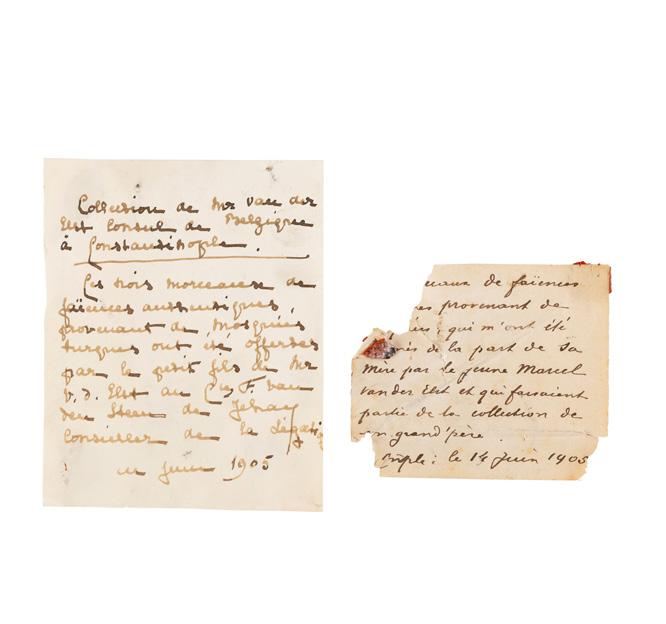 Collection de Mr van der
Elst Consul de Belgique
à Constantinople.
Ces trois morceaux de
faïences authentiques,
provenant de Mosquées
turques ont été offertes
par le petit fils de Mr
V. d. Elst au Cte F. van
den Steen de Jehay
Conseiller de la Légati
juin 1905
eaux de faïences
es provenant de
qui m'ont été
de la part de Sa
Mère par le jeune Marcel
van der Elst et qui faisaient
partie de la collection de
on grand'père.
le 14 juin 1905